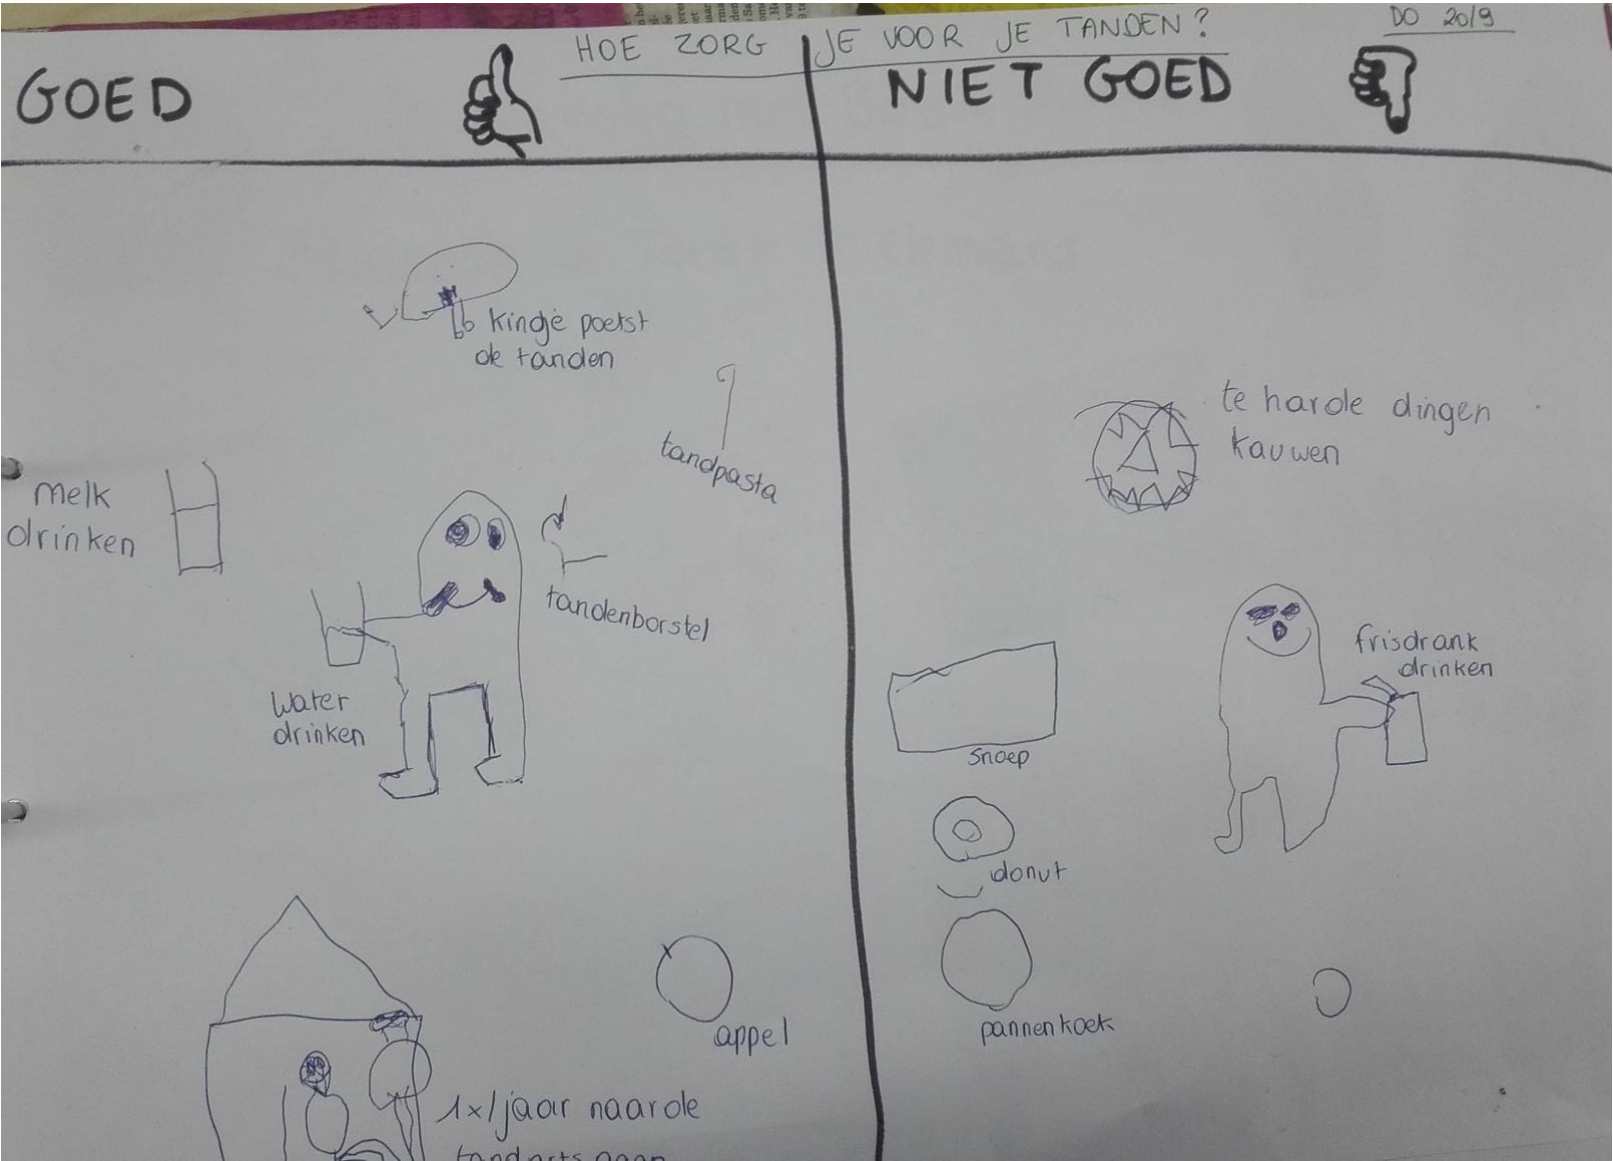 DO 20/9
HOE ZORG JE VOOR JE TANDEN?
GOED
NIET GOED
kindje poetst
de tanden
tandpasta
melk
drinken
tandenborstel
water
drinken
appel
1x/jaar naar de
tandarts gaan
te harde dingen
kauwen
frisdrank
drinken
snoep
donut
pannenkoek